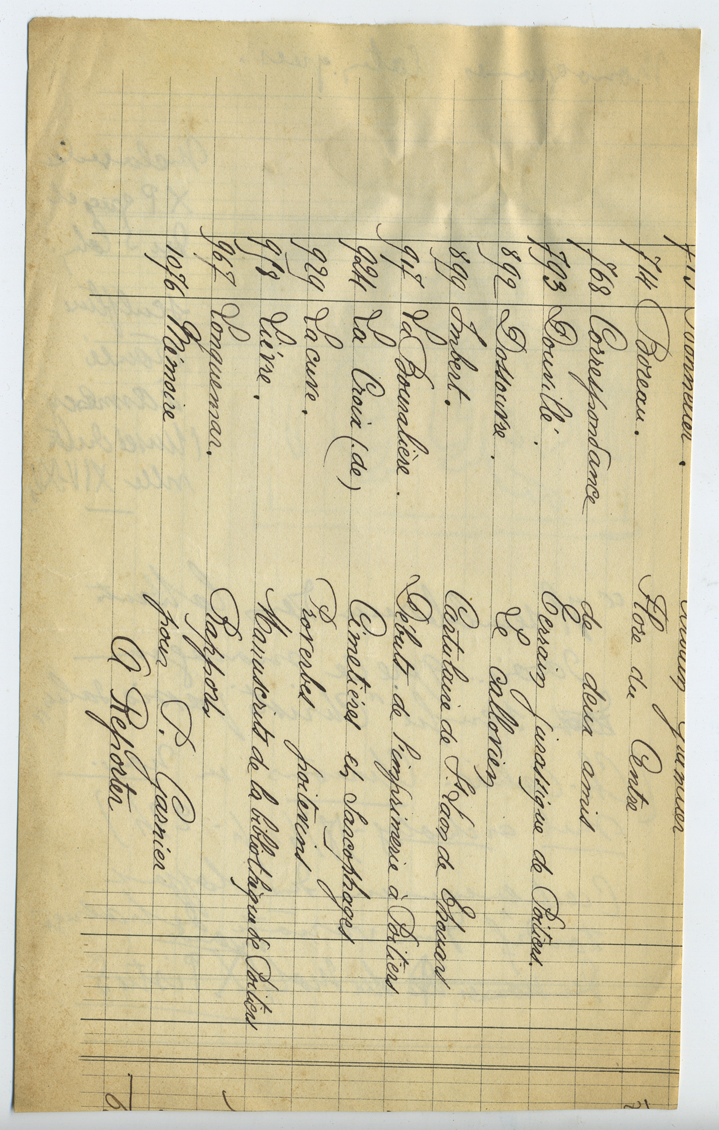 714 Boreau. Flore du Centre
768 Correspondance de deux amis
793 Douvillé. Terrain jurassique de Poitiers.
892 Dossourne. Le callovien
899 Imbert. Cartulaire de St Laon de Thouars
917 La Bouralière. Début de l'imprimerie à Poitiers
924 La Croix (de) Cimetières et Sarcophages
929 Lacuve. Proverbes poitevins
958 Lièvre. Manuscrits de la bibliothèque de Poitiers
967 Longuemar. Rapports
1076 Mémoire pour P. Garnier
A Reporter